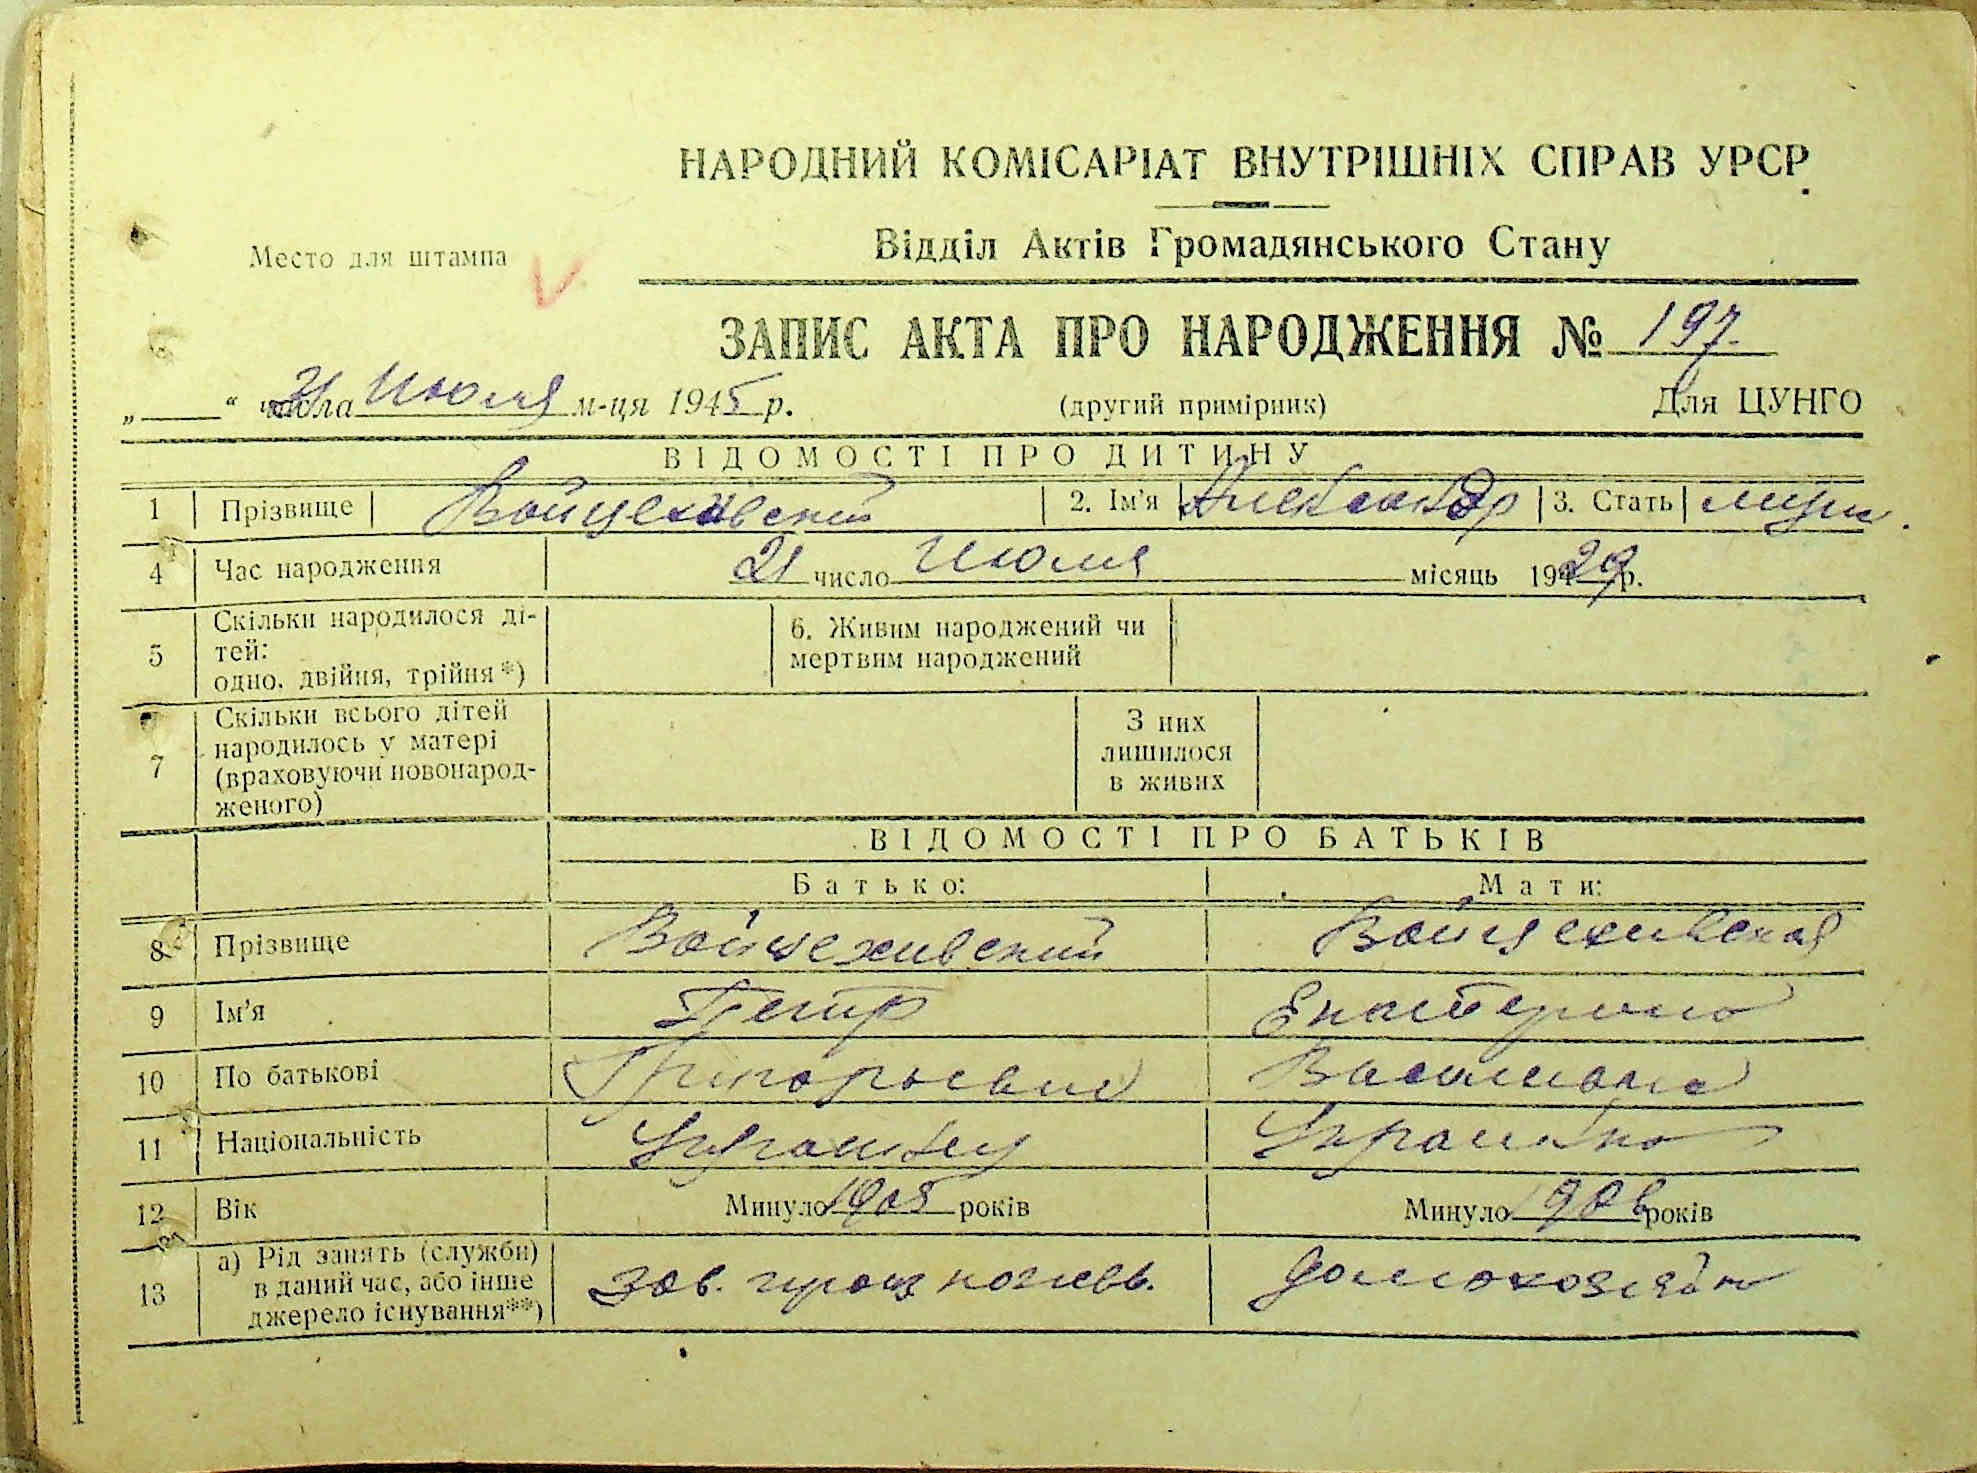 НАРОДНИЙ КОМІСАРІАТ ВНУТРІШНІХ СПРАВ УРСР
Відділ Актів Громадянського Стану
Место для штампа
ЗАПИС АКТА ПРО НАРОДЖЕННЯ № 197.
„ “ 21 числа Июля м-ця 1945 р. (другий примірник) Для ЦУНГО
ВІДОМОСТІ ПРО ДИТИНУ
1 Прізвище Войцеховский 2. Ім'я Александр 3. Стать муж.
4 Час народження 21 число Июля місяць 1929 р.
5 Скільки народилося ді-
тей:
одно, двійня, трійня*)
6. Живим народжений чи
мертвим народжений
7 Скільки всього дітей
народилось у матері
(враховуючи новонарод-
женого)
З них
лишилося
в живих
ВІДОМОСТІ ПРО БАТЬКІВ
Батько: Мати:
8 Прізвище Войцехивский Войцехивская
9 Ім'я Петр Екатерина
10 По батькові Григорьевич Васильевна
11 Національність Украинец Украинка
12 Вік Минуло 1905 років Минуло 1906 років
13 а) Рід занять (служби)
в даний час, або інше
джерело існування**)
зав. домохозяйк